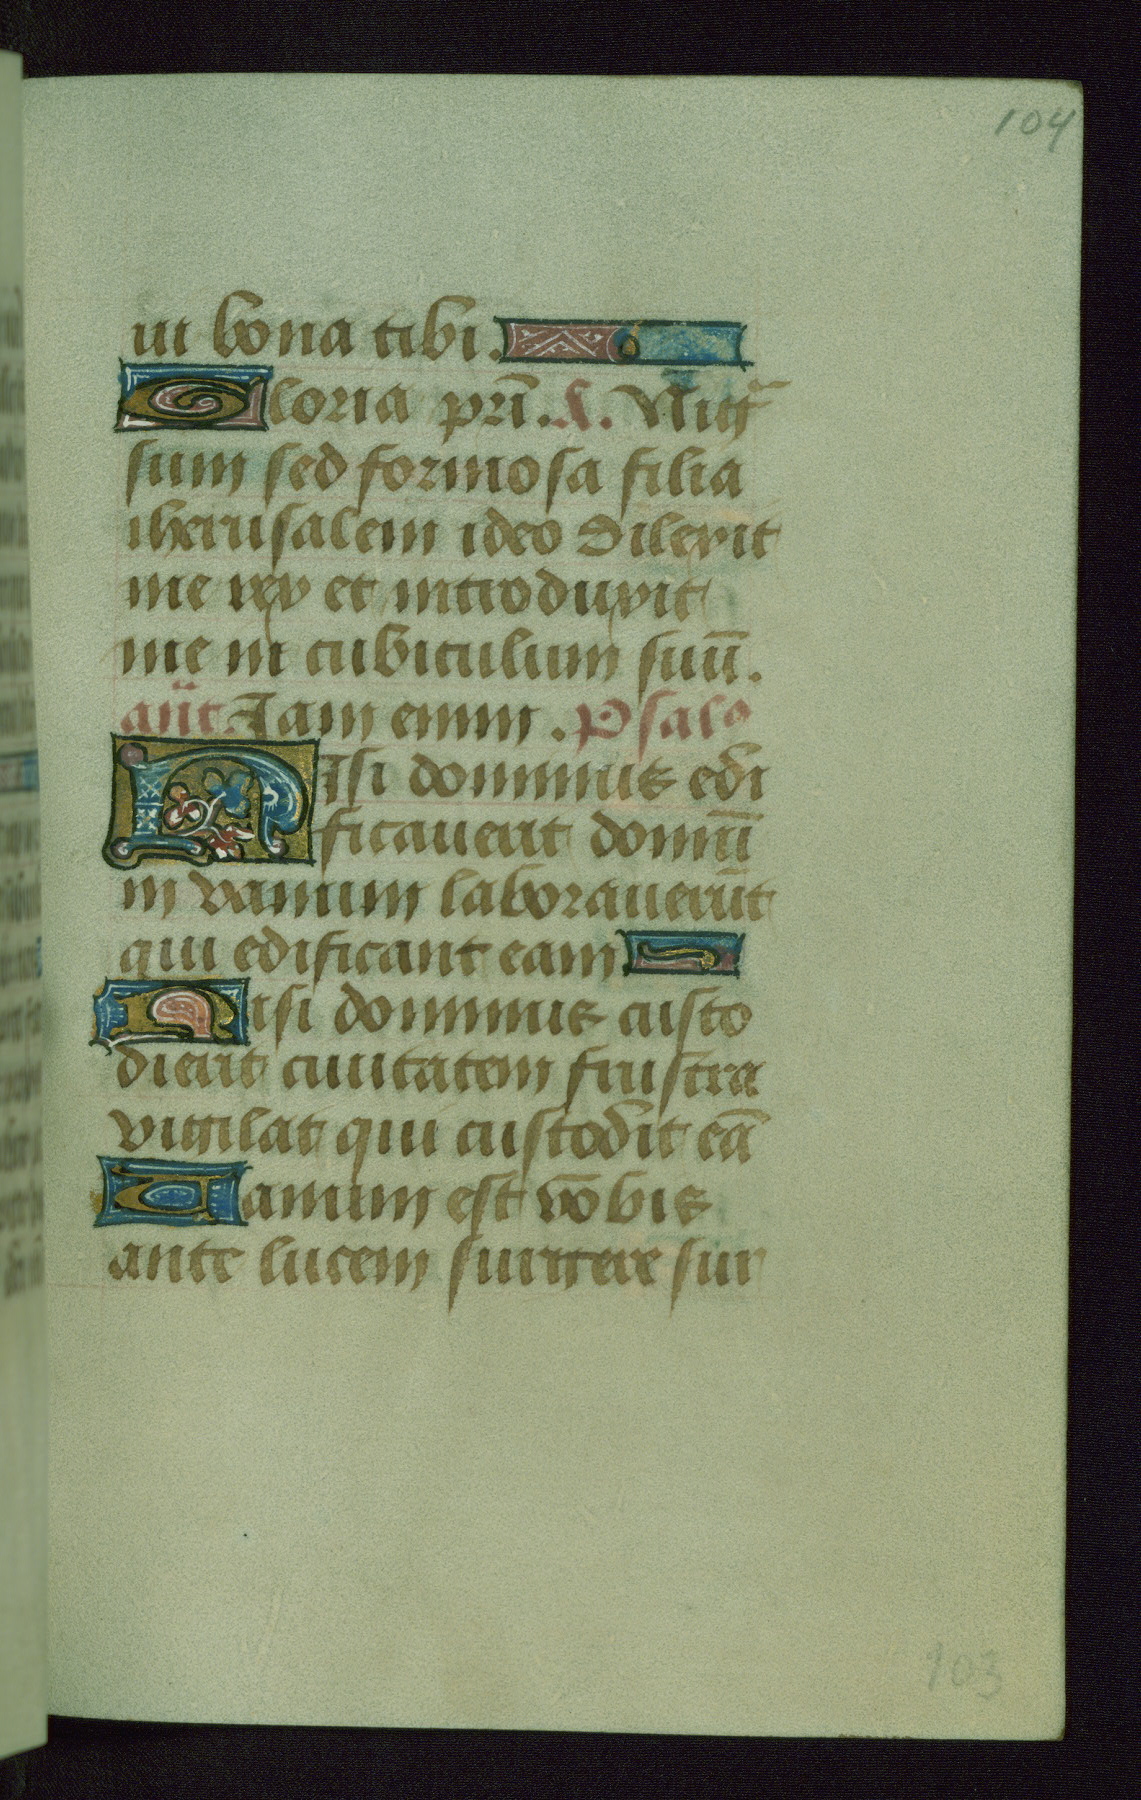 104
ui bona tibi.
Gloria pr̃i. A. Nigr̃
sum sed formosa filia
iherusalem ideo dilexit
me rex et introduxit
me in cubiculum suũ.
añt. Iam enim. Psalo
Nisi dominus edi
ficauerit domũ
in vanum laborauerũt
qui edificant eam
Nisi dominus custo
dierit ciuitatem frustra
vigilat qui custodit eã
Uanum est vobis
ante lucem surgere sur
103